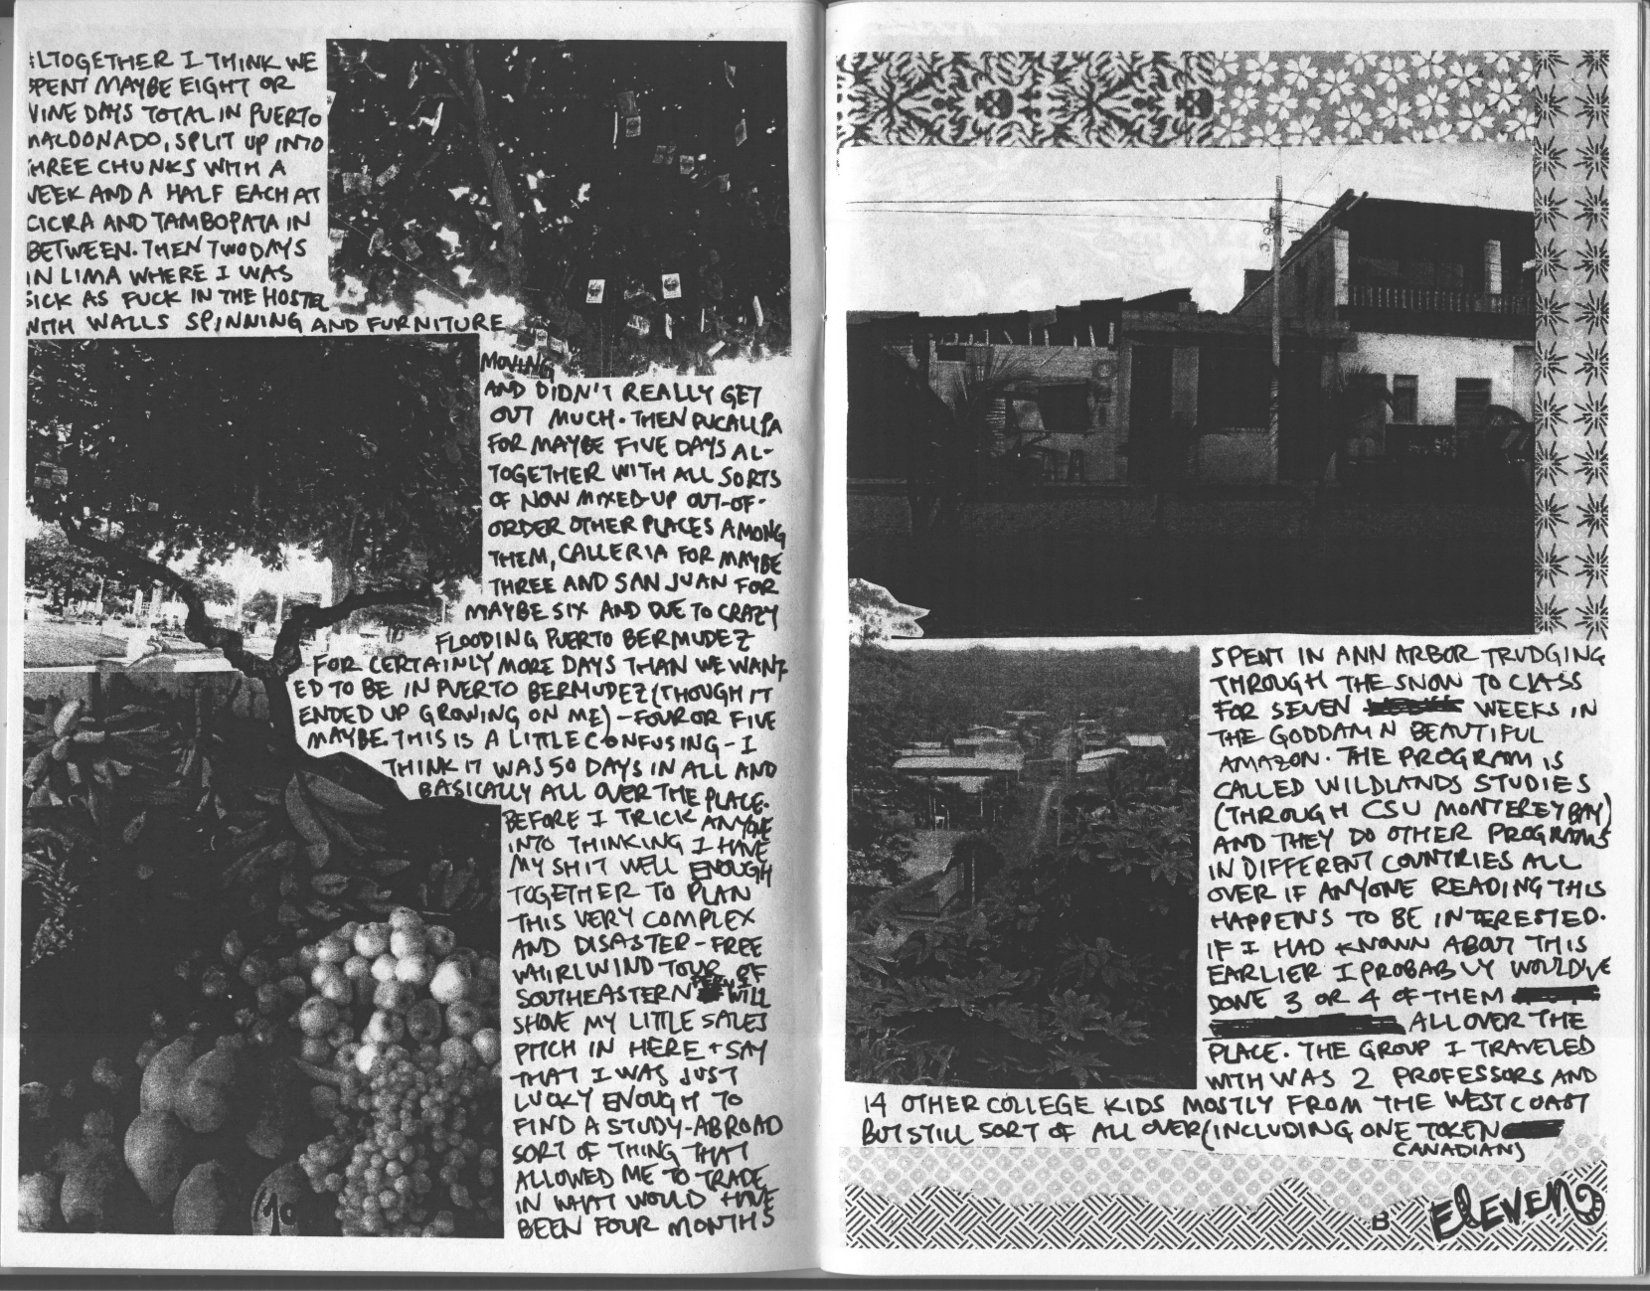 ALTOGETHER I THINK WE
SPENT MAYBE EIGHT OR
NINE DAYS TOTAL IN PUERTO
MALDONADO, SPLIT UP INTO
THREE CHUNKS WITH A
WEEK AND A HALF EACH AT
CICRA AND TAMBOPATA IN
BETWEEN. THEN TWO DAYS
IN LIMA WHERE I WAS
SICK AS FUCK IN THE HOSTEL
WITH WALLS SPINNING AND FURNITURE
MOVING
AND DIDN'T REALLY GET
OUT MUCH. THEN PUCALLPA
FOR MAYBE FIVE DAYS AL-
TOGETHER WITH ALL SORTS
OF NOW MIXED-UP OUT-OF-
ORDER OTHER PLACES AMONG
THEM, CALLERIA FOR MAYBE
THREE AND SAN JUAN FOR
MAYBE SIX AND DUE TO CRAZY
FLOODING PUERTO BERMUDEZ
FOR CERTAINLY MORE DAYS THAN WE WANT
ED TO BE IN PUERTO BERMUDEZ (THOUGH IT
ENDED UP GROWING ON ME) - FOUR OR FIVE
MAYBE. THIS IS A LITTLE CONFUSING - I
THINK IT WAS 50 DAYS IN ALL AND
BASICALLY ALL OVER THE PLACE.
BEFORE I TRICK ANYONE
INTO THINKING I HAVE
MY SHIT WELL ENOUGH
TOGETHER TO PLAN
THIS VERY COMPLEX
AND DISASTER-FREE
WHIRLWIND TOUR OF
SOUTHEASTERN PERU I WILL
SHOVE MY LITTLE SALES
PITCH IN HERE + SAY
THAT I WAS JUST
LUCKY ENOUGH TO
FIND A STUDY-ABROAD
SORT OF THING THAT
ALLOWED ME TO TRADE
IN WHAT WOULD HAVE
BEEN FOUR MONTHS
SPENT IN ANN ARBOR TRUDGING
THROUGH THE SNOW TO CLASS
FOR SEVEN WEEKS IN
THE GODDAMN BEAUTIFUL
AMAZON. THE PROGRAM IS
CALLED WILDLANDS STUDIES
(THROUGH CSU MONTEREY BAY)
AND THEY DO OTHER PROGRAMS
IN DIFFERENT COUNTRIES ALL
OVER IF ANYONE READING THIS
HAPPENS TO BE INTERESTED.
IF I HAD KNOWN ABOUT THIS
EARLIER I PROBABLY WOULD'VE
DONE 3 OR 4 OF THEM
ALL OVER THE
PLACE. THE GROUP I TRAVELED
WITH WAS 2 PROFESSORS AND
14 OTHER COLLEGE KIDS MOSTLY FROM THE WEST COAST
BUT STILL SORT OF ALL OVER (INCLUDING ONE TOKEN
CANADIAN)
B ELEVEN